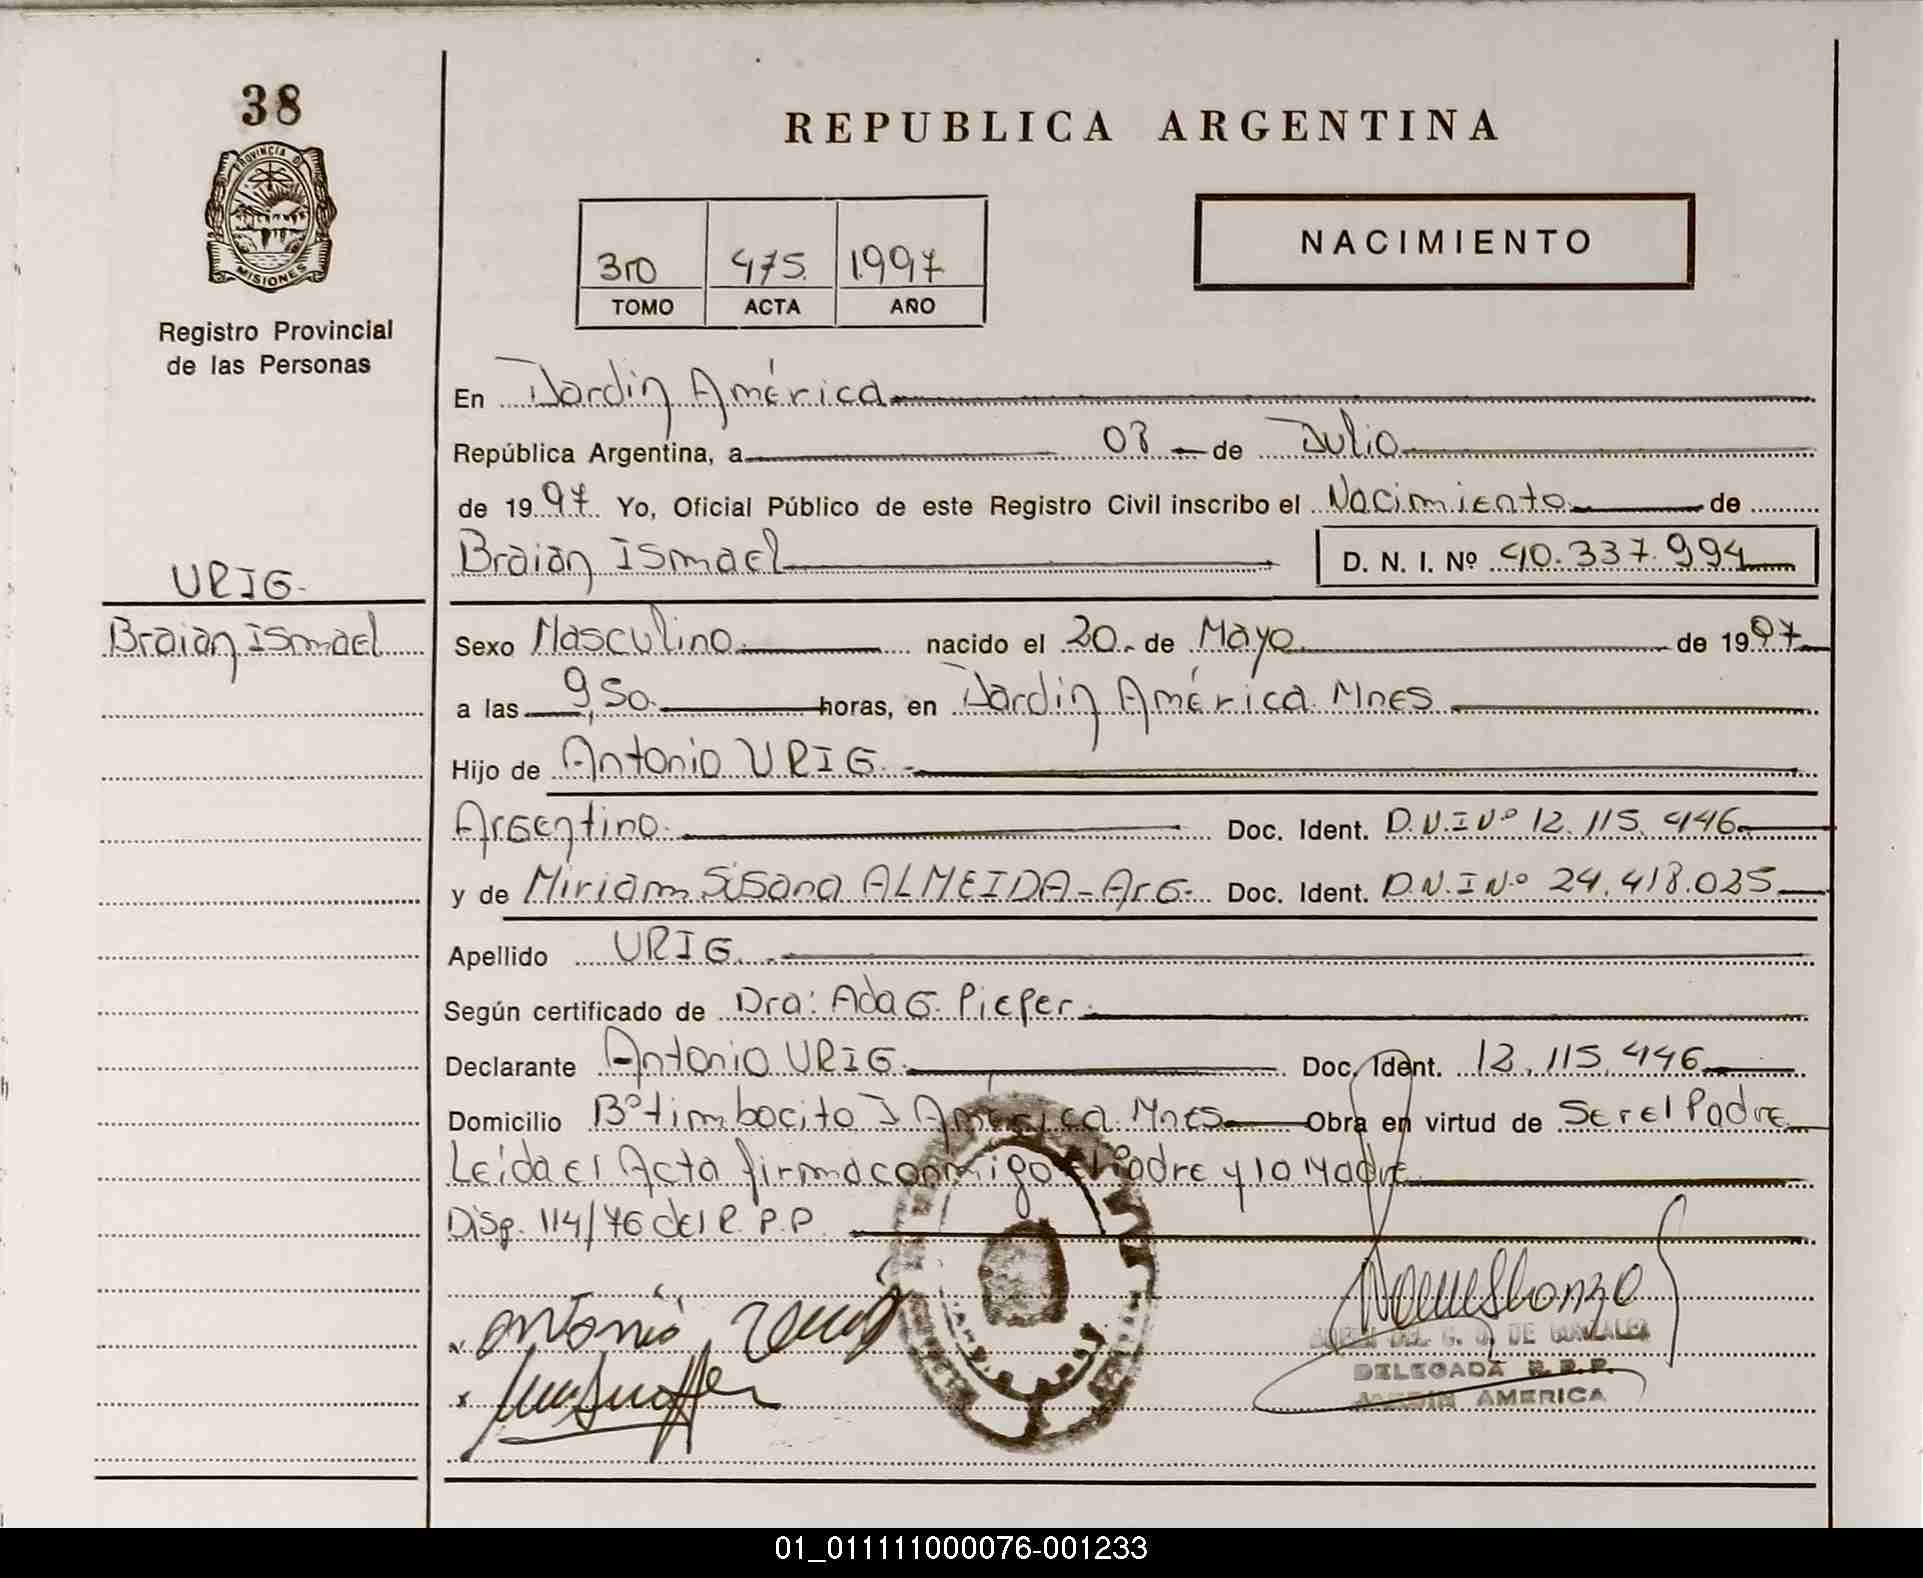 38
PROVINCIA DE
MISIONES
Registro Provincial
de las Personas
REPUBLICA ARGENTINA
3ro 475 1997
TOMO ACTA AÑO
NACIMIENTO
En Jardin América
República Argentina, a 08 de Julio
de 1997 Yo, Oficial Público de este Registro Civil inscribo el Nacimiento de
Braian Ismael D. N. I. Nº 40.337.994
URIG.
Braian Ismael
Sexo Masculino nacido el 20 de Mayo de 1997
a las 9,50 horas, en Jardin América Mnes
Hijo de Antonio URIG.
Argentino. Doc. Ident. D.N.I Nº 12.115.446
y de Miriam Susana ALMEIDA - Arg. Doc. Ident. D.N.I Nº 24.418.025
Apellido URIG.
Según certificado de Dra: Ada G. Pieper.
Declarante Antonio URIG. Doc. Ident. 12.115.446
Domicilio Bº timbocito J América Mnes Obra en virtud de Ser el Padre
Leída el Acta firma conmigo el Padre y la Madre
Disp. 114/76 del R.P.P.
Antonio
DE GONZALEZ
DELEGADA R.P.P.
JARDIN AMERICA
01_011111000076-001233